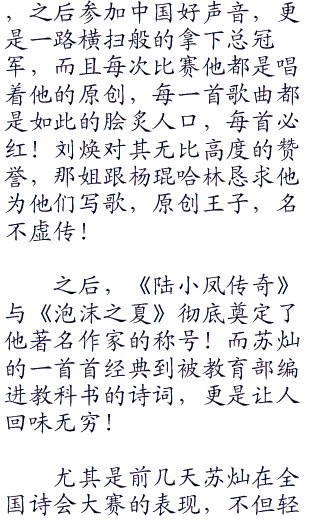 ，之后参加中国好声音，更
是一路横扫般的拿下总冠
军，而且每次比赛他都是唱
着他的原创，每一首歌曲都
是如此的脍炙人口，每首必
红！刘焕对其无比高度的赞
誉，那姐跟杨琨哈林恳求他
为他们写歌，原创王子，名
不虚传！
之后，《陆小凤传奇》
与《泡沫之夏》彻底奠定了
他著名作家的称号！而苏灿
的一首首经典到被教育部编
进教科书的诗词，更是让人
回味无穷！
尤其是前几天苏灿在全
国诗会大赛的表现，不但轻